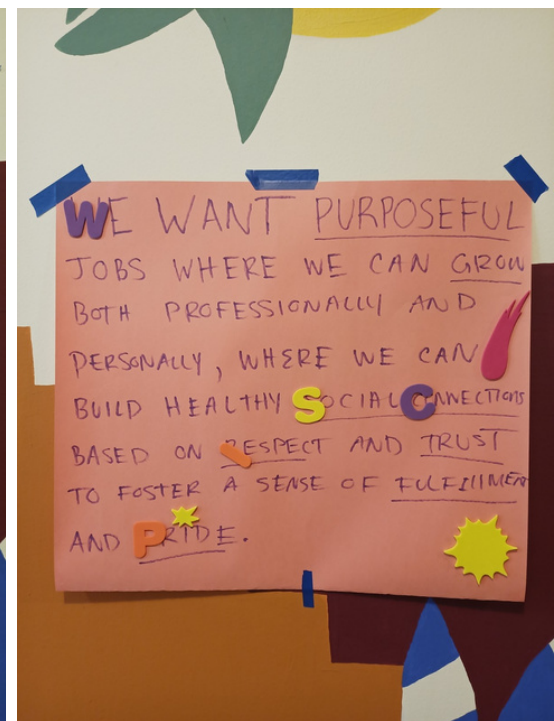 WE WANT PURPOSEFUL
JOBS WHERE WE CAN GROW
BOTH PROFESSIONALLY AND
PERSONALLY, WHERE WE CAN
BUILD HEALTHY SOCIAL CONNECTIONS
BASED ON RESPECT AND TRUST
TO FOSTER A SENSE OF FULFILLMENT
AND PRIDE.